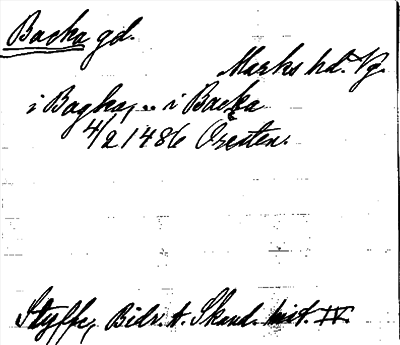 Backa gd.
Marks hd. Vg.
i Bagha, .. i Backa
4/2 1486 Öresten.
Styffe, Bidr. t. Skand. hist. IV.